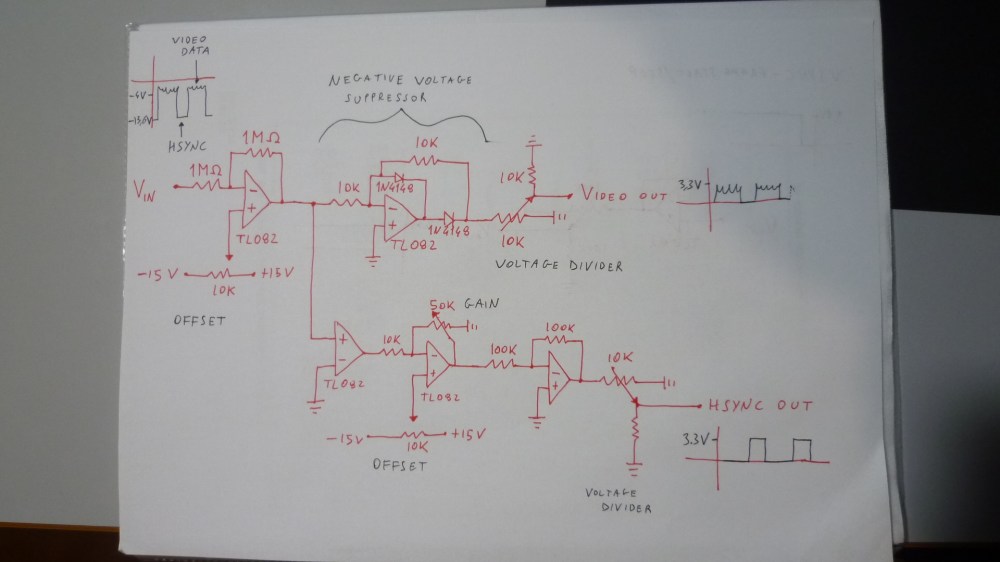 VIDEO
DATA
-4V
HSYNC
NEGATIVE VOLTAGE
SUPPRESSOR
1MΩ
1MΩ
VIN
-
+
TL082
-15V
+15V
10K
OFFSET
10K
10K
1N4148
-
+
TL082
1N4148
10K
10K
VOLTAGE DIVIDER
VIDEO OUT
3.3V
+
-
TL082
10K
50K GAIN
-
+
TL082
-15V
+15V
10K
OFFSET
100K
100K
-
+
10K
HSYNC OUT
3.3V
VOLTAGE
DIVIDER